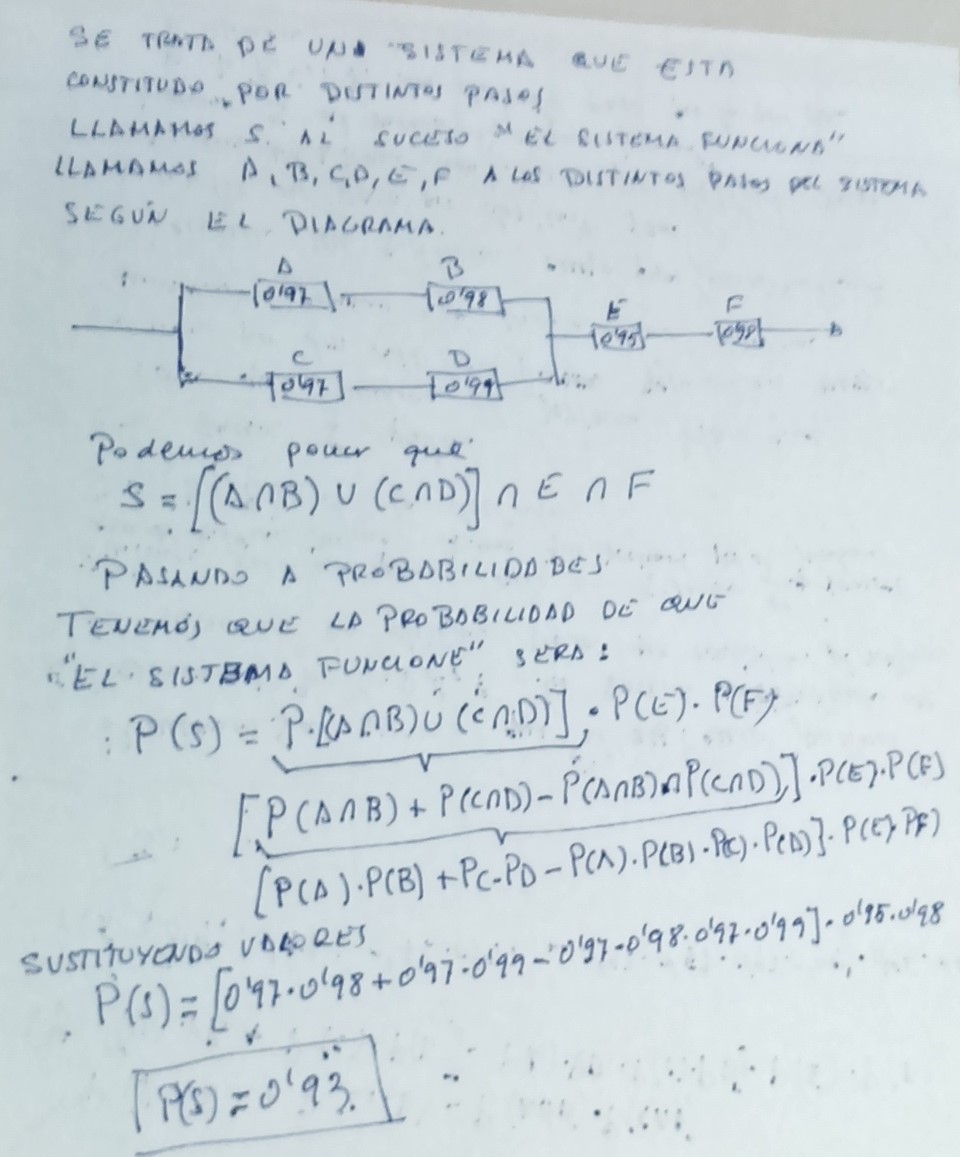 SE TRATA DE UNA SISTEMA QUE ESTA
CONSTITUDO POR DISTINTOS PASOS
LLAMAMOS S AL SUCESO "EL SISTEMA FUNCIONA"
LLAMAMOS A, B, C, D, E, F A LOS DISTINTOS PASOS DEL SISTEMA
SEGÚN EL DIAGRAMA.
A B
0'97 0'98
E F
0'95 0'98
C D
0'97 0'99
Podemos poner que
S = [(A∩B) ∪ (C∩D)] ∩ E ∩ F
PASANDO A PROBABILIDADES
TENEMOS QUE LA PROBABILIDAD DE QUE
"EL SISTEMA FUNCIONE" SERA:
P(S) = P[(A∩B)∪(C∩D)] · P(E) · P(F)
[P(A∩B) + P(C∩D) - P(A∩B)∩P(C∩D)] · P(E) · P(F)
[P(A)·P(B) + PC·PD - P(A)·P(B)·P(C)·P(D)] · P(E)·P(F)
SUSTITUYENDO VALORES
P(S) = [0'97·0'98 + 0'97·0'99 - 0'97·0'98·0'97·0'99] · 0'95·0'98
P(S) = 0'93.